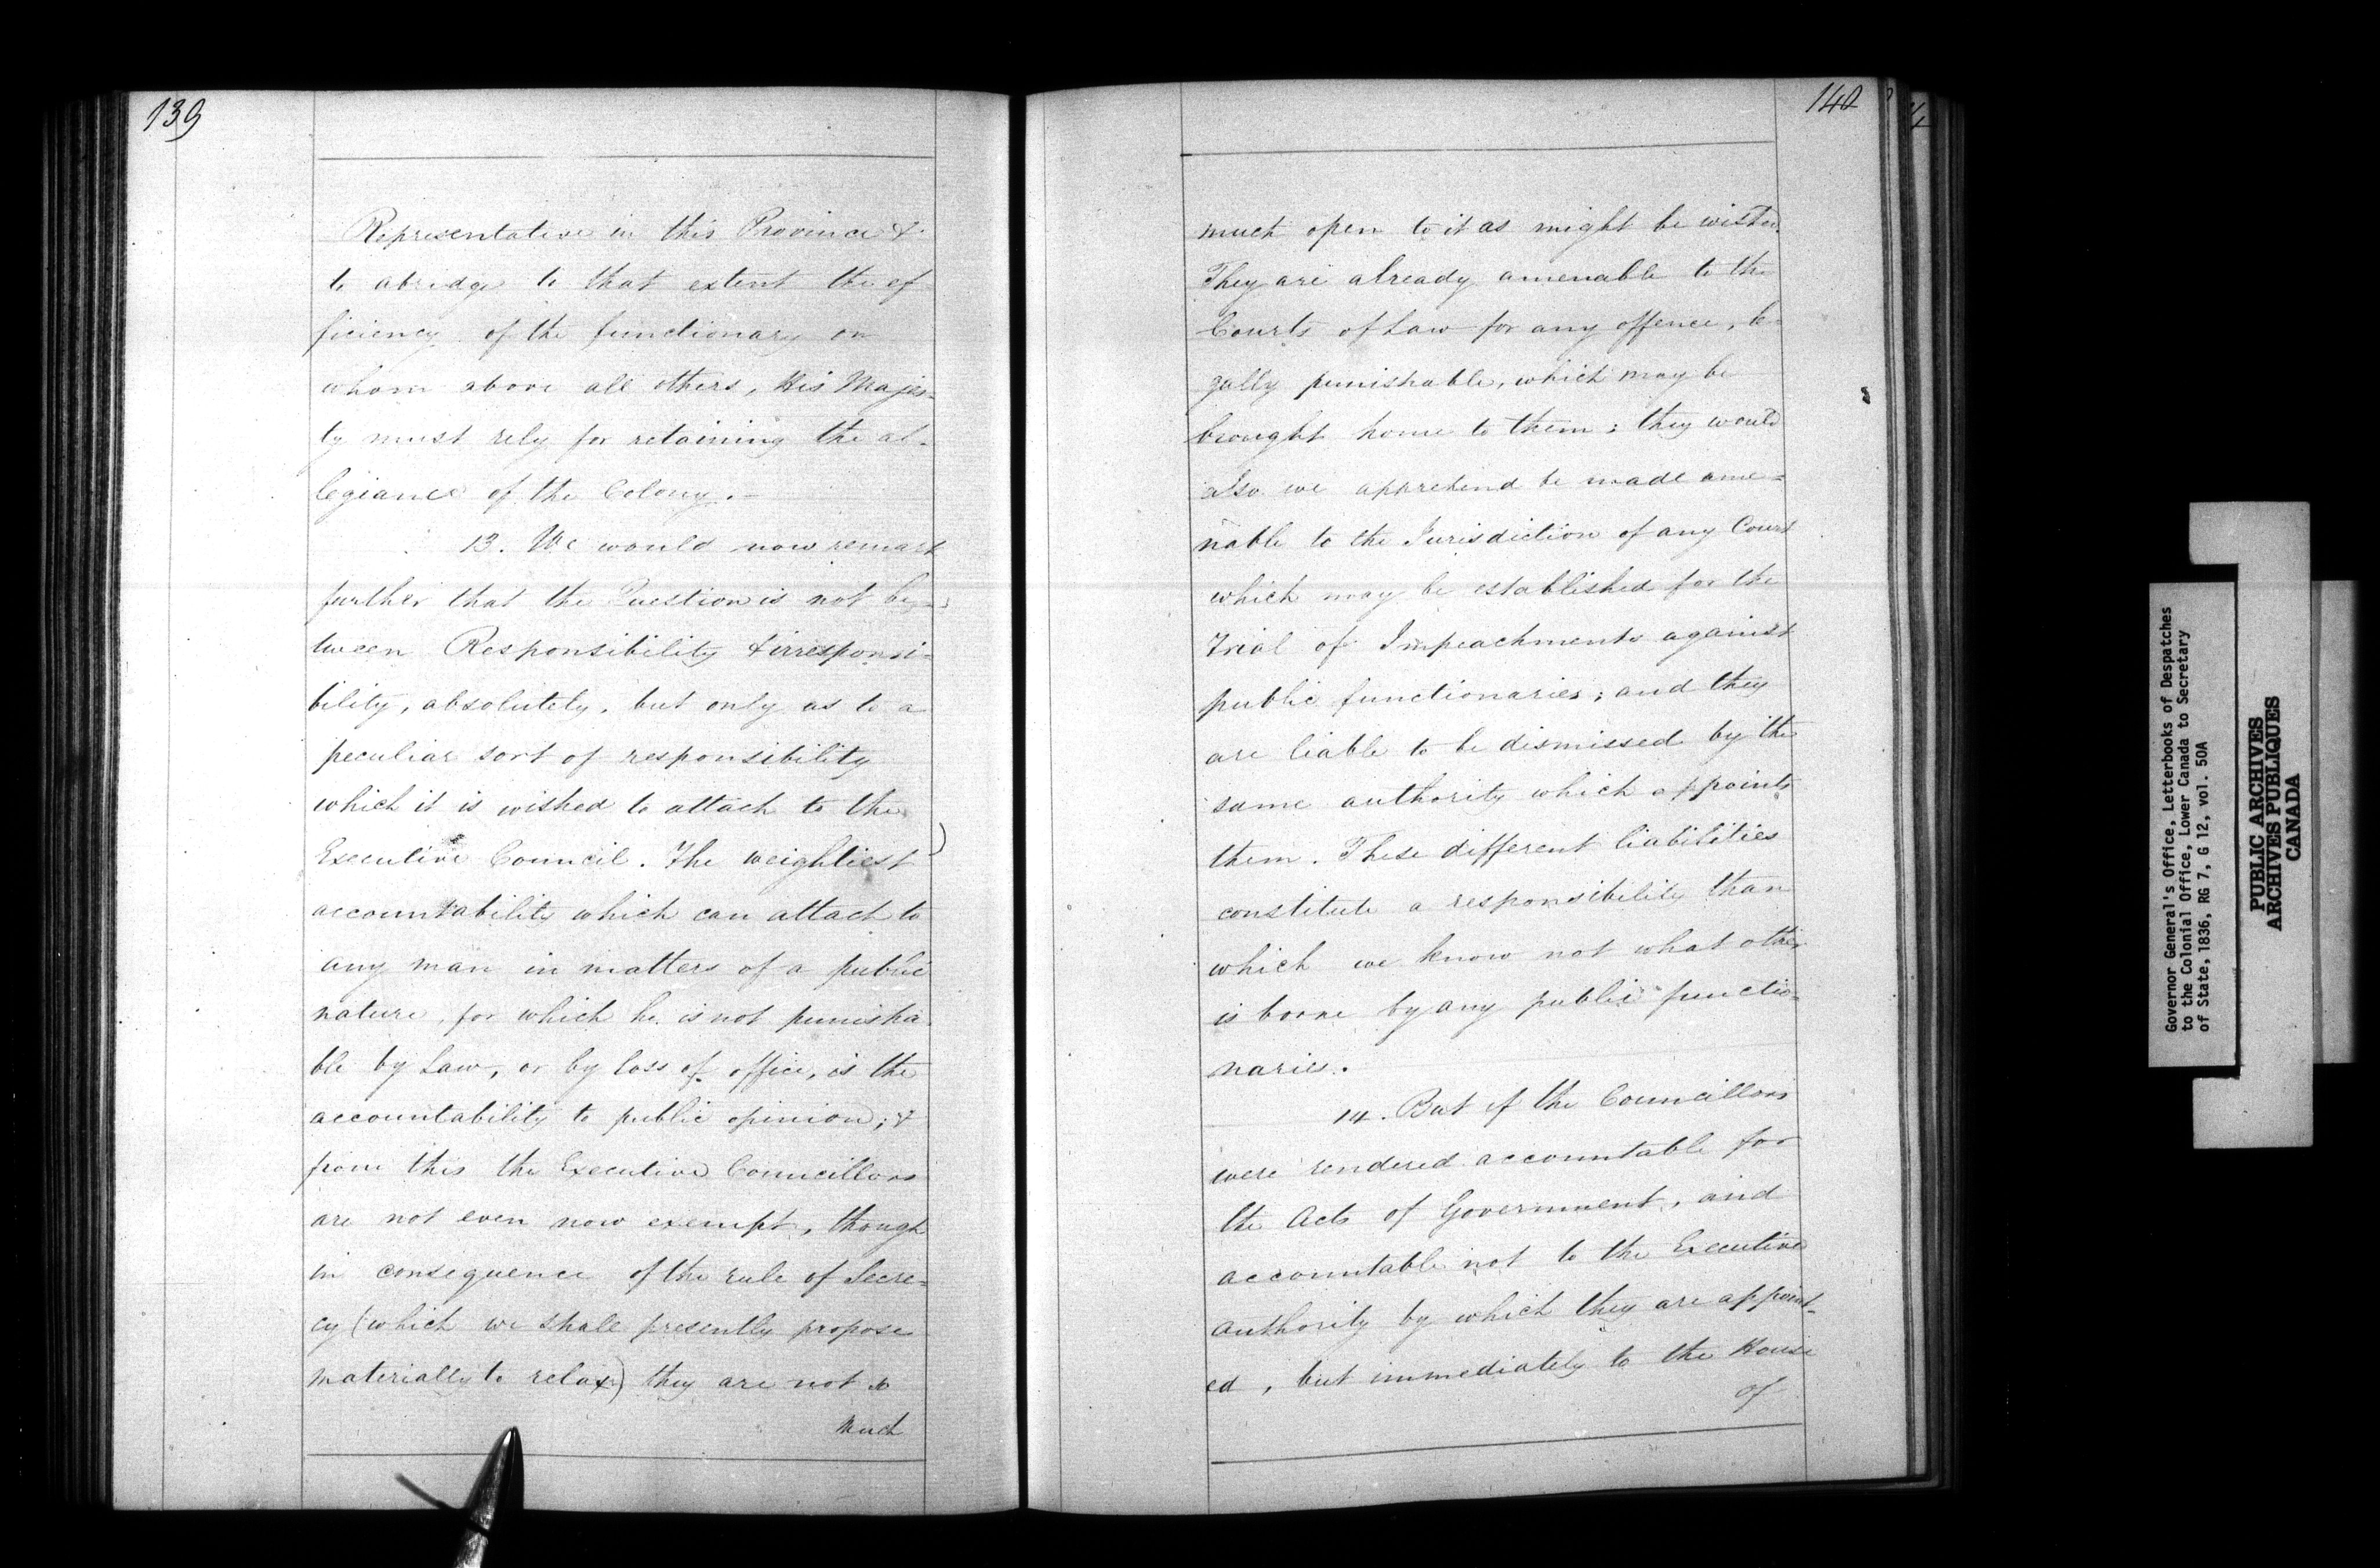 139
Representative in this Province &
to abridge to that extent the ef
ficiency of the functionary on
whom above all others, His Majes-
ty must rely for retaining the al-
legiance of the Colony. -
13. We would now remark
further that the Question is not be-
tween Responsibility & irresponsi-
bility, absolutely, but only as to a
peculiar sort of responsibility
which it is wished to attach to the
Executive Council. The weightiest
accountability which can attach to
any man in matters of a public
nature, for which he is not punisha
ble by Law, or by loss of office, is the
accountability to public opinion; &
from this the Executive Councillors
are not even now exempt, though
in consequence of the rule of Secre-
cy (which we shall presently propose
materially to relax) they are not so
Much
140
much open to it as might be wished.
They are already amenable to the
Courts of Law for any offence, le-
gally punishable, which may be
brought home to them; they would
also we apprehend be made ame-
nable to the Jurisdiction of any Court
which may be established for the
Trial of Impeachments against
public functionaries; and they
are liable to be dismissed by the
same authority which appoints
them. These different liabilities
constitute a responsibility than
which we know not what other
is borne by any public functio-
naries.
14. But if the Councillors
were rendered accountable for
the Acts of Government, and
accountable not to the Executive
authority by which they are appoint-
ed, but immediately to the House
of
Governor General's Office, Letterbooks of Despatches
to the Colonial Office, Lower Canada to Secretary
of State, 1836, RG 7, G 12, vol. 50A
PUBLIC ARCHIVES
ARCHIVES PUBLIQUES
CANADA